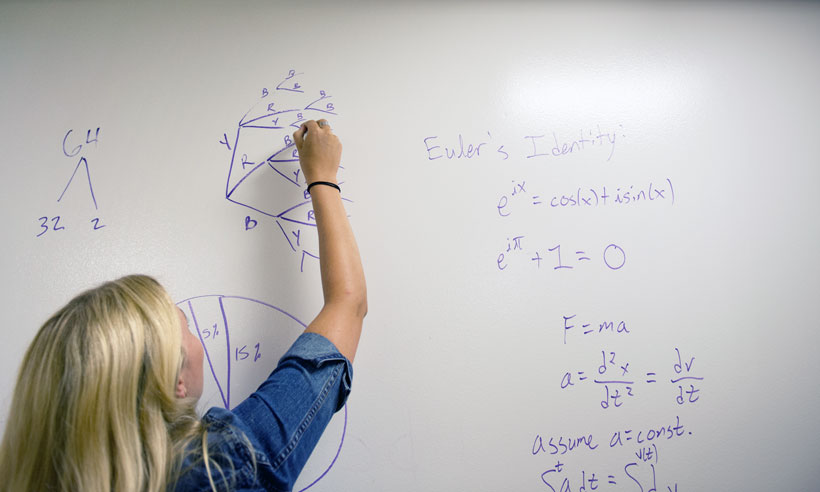 64
32 2
B
B B
R B B
Y B
Y
R B
R
Y
B
B
R
Y
5%
15%
Euler's Identity:
e^{ix} = cos(x) + isin(x)
e^{iπ} + 1 = 0
F = ma
a = d²x/dt² = dv/dt
assume a = const.